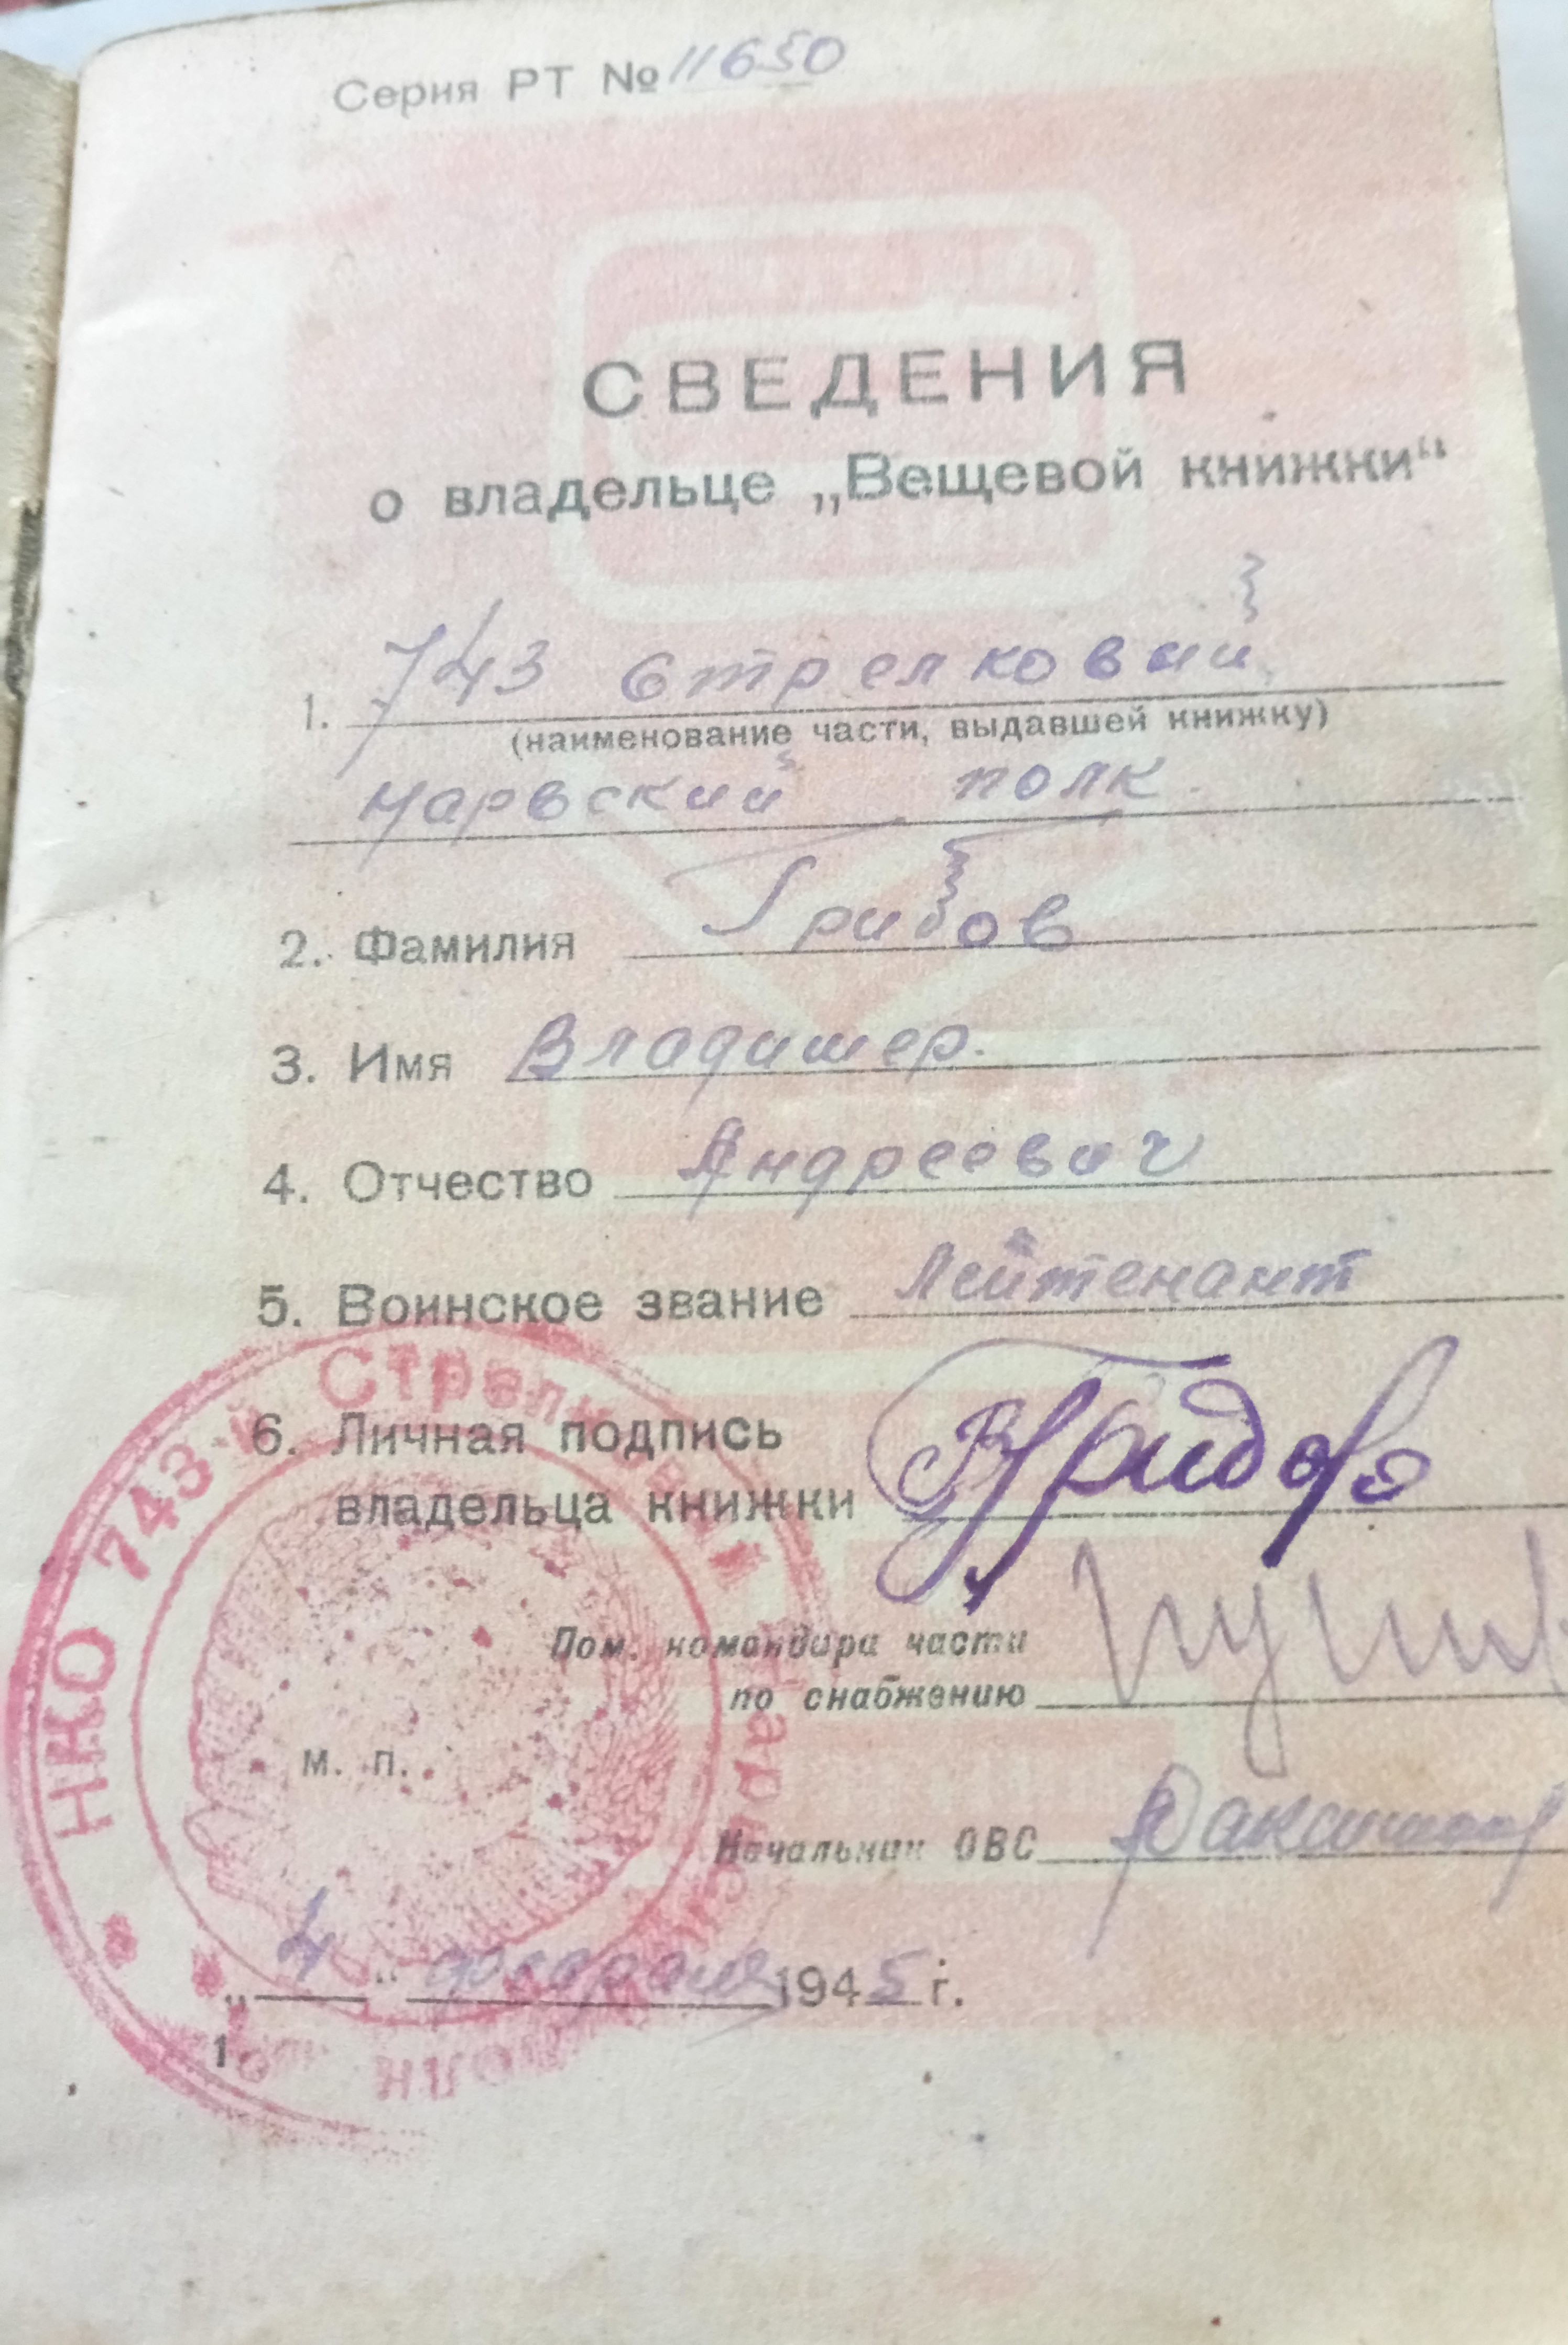 Серия РТ № 11650
СВЕДЕНИЯ
о владельце „Вещевой книжки“
1. 743 Стрелковый
(наименование части, выдавшей книжку)
Нарвский полк
2. Фамилия Грибов
3. Имя Владимер.
4. Отчество Андреевич
5. Воинское звание Лейтенант
6. Личная подпись
владельца книжки Грибов
Пом. командира части
по снабжению
М. П.
Начальник ОВС
„4“ февраля 1945 г.
1
НКО 743-й Стрелковый